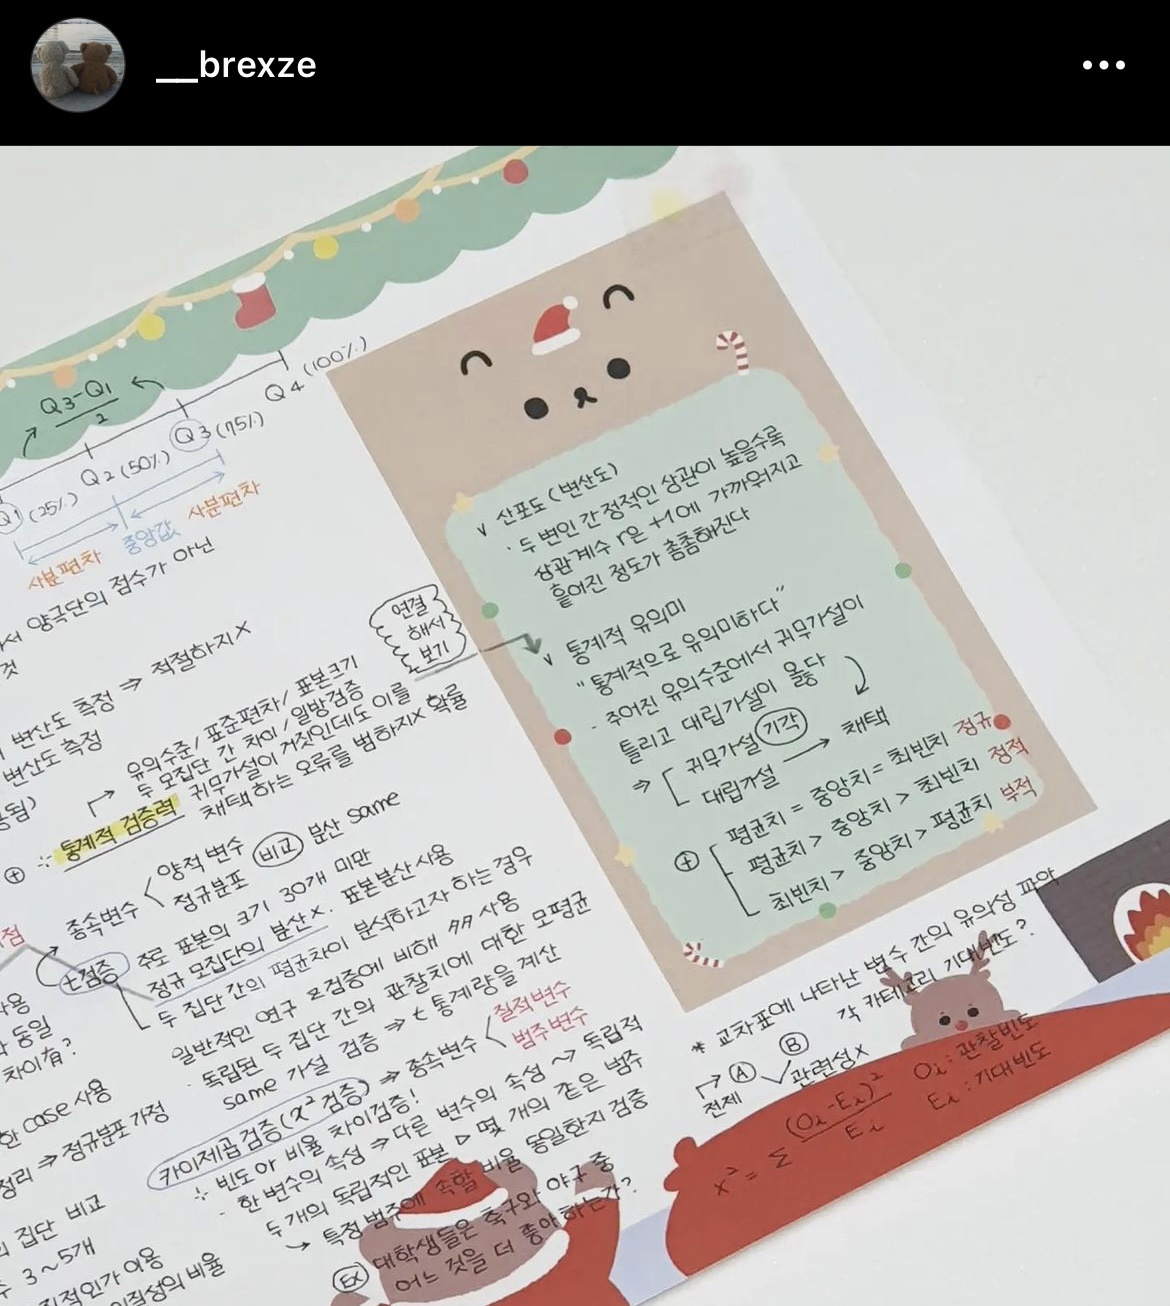 __brexze
Q3-Q1
2
Q1 (25%)
Q2 (50%)
Q3 (75%)
Q4 (100%)
사분편차
중앙값
사분편차
서 양극단의 점수가 아닌
것
변산도 측정 ⇒ 적절하지 X
변산도 측정
유의수준 / 표준편차 / 표본크기
두 모집단 간 차이 / 일방검증
통계적 검증력
귀무가설이 거짓인데도 이를
채택하는 오류를 범하지X 확률
연결
해서
보기
종속변수 < 양적 변수
정규분포
비교 분산 same
t검증
주로 표본의 크기 30개 미만
정규 모집단의 분산 X. 표본분산 사용
두 집단 간의 평균차이 분석하고자 하는 경우
일반적인 연구 z검증에 비해 사용
· 독립된 두 집단 간의 관찰치에 대한 모평균
same 가설 검증 ⇒ t 통계량을 계산
카이제곱검증(x² 검증) ⇒ 종속변수 < 질적변수
범주변수
빈도 or 비율 차이검증!
- 한 변수의 속성 ⇒ 다른 변수의 속성 ~> 독립적
두 개의 독립적인 표본 ▷ 몇 개의 같은 범주
특정 범주에 속할 비율 동일한지 검증
Ex 대학생들은 축구와 야구 중
어느 것을 더 좋아하는가?
점
사용
동일
차이有?
한 case 사용
정리 ⇒ 정규분포 가정
집단 비교
3~5개
질적인가 이용
이질성의 비율
v 산포도 (변산도)
· 두 변인 간 정적인 상관이 높을수록
상관계수 r은 +1에 가까워지고
흩어진 정도가 촘촘해진다
v 통계적 유의미
"통계적으로 유의미하다"
- 주어진 유의수준에서 귀무가설이
틀리고 대립가설이 옳다
⇒ [ 귀무가설 기각
대립가설 → 채택
+ [ 평균치 = 중앙치 = 최빈치 정규
평균치 > 중앙치 > 최빈치 정적
최빈치 > 중앙치 > 평균치 부적
* 교차표에 나타난 변수 간의 유의성 파악
각 카테고리 기대빈도?
전제
A B
관련성 X
x² = Σ (Oi-Ei)² / Ei
Oi : 관찰빈도
Ei : 기대빈도